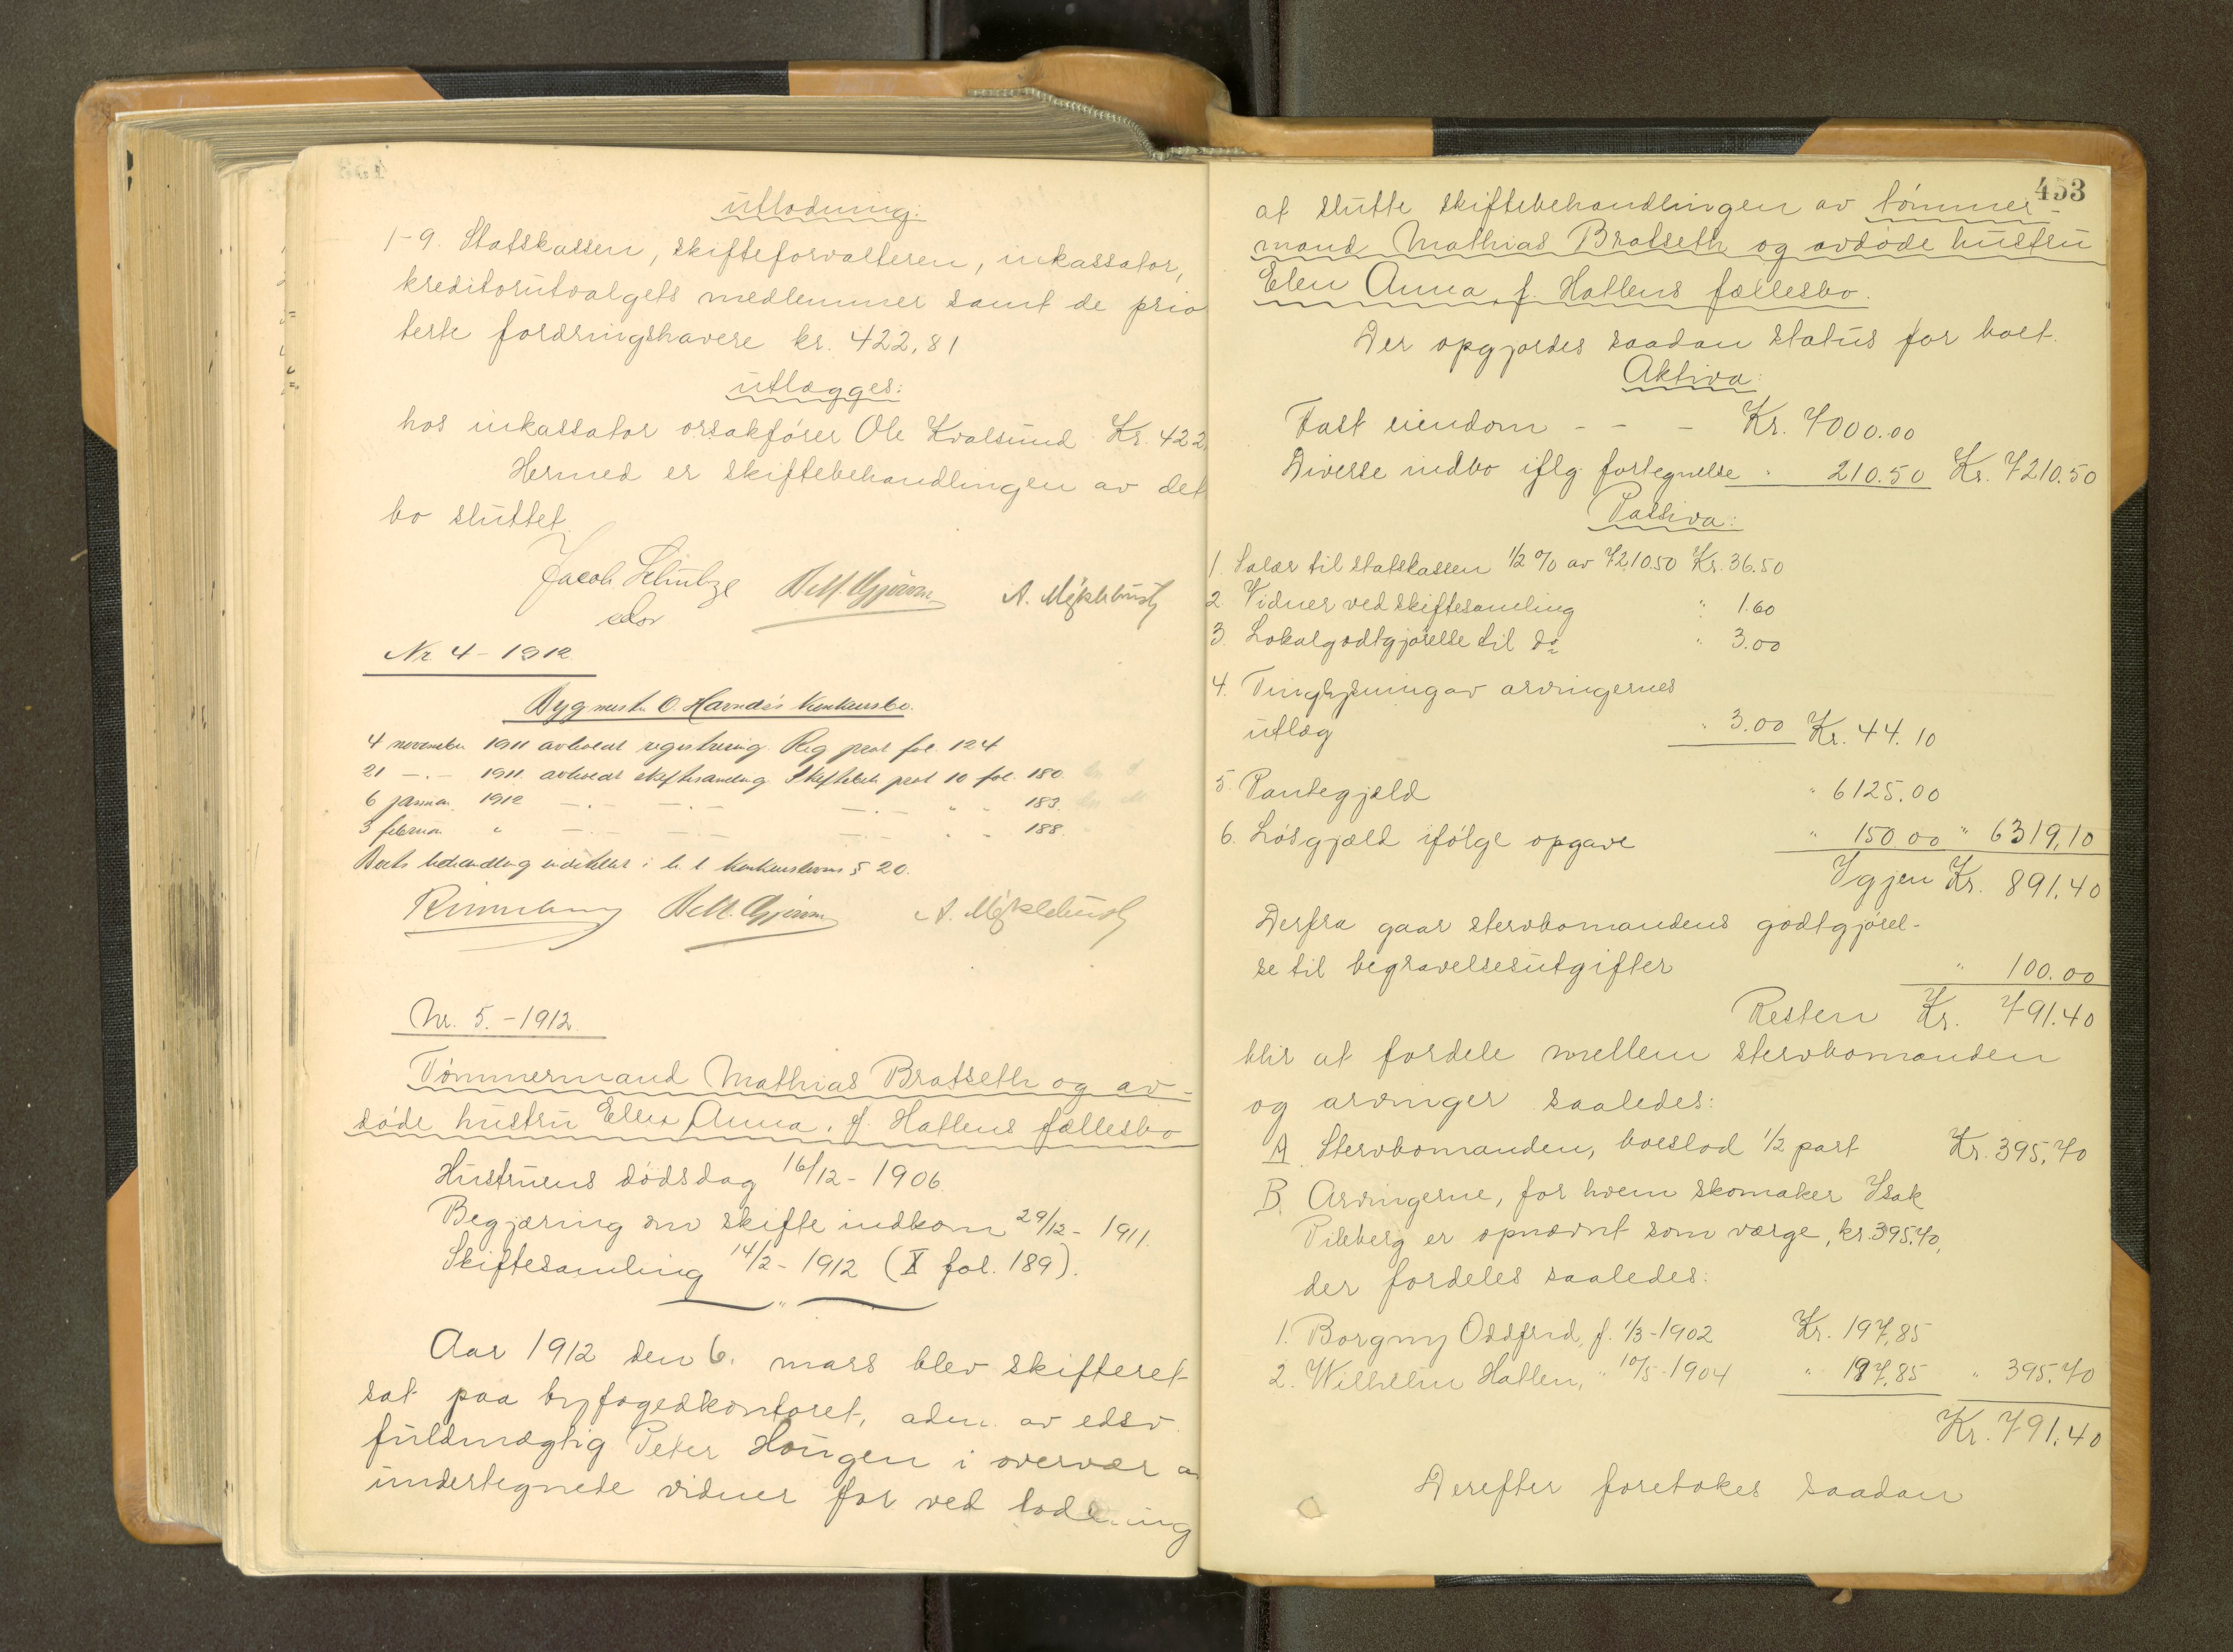 utlodning:
1-9. Statskassen, skifteforvalteren, inkassator,
kreditorutvalgets medlemmer samt de prio
terte fordringshavere kr. 422,81
utlægges:
hos inkassator orsakfører Ole Kvalsund Kr. 422
Hermed er skiftebehandlingen av det
bo sluttet.
Jacob Schultze
edsv
A. Myklebust
Nr 4 - 1912
Bygmester O. Havnæs's konkursbo.
4 november 1911 avholdt registrering. Reg prot fol. 124
21 -.- 1911. avholdt skiftesamling Skiftebeh prot 10 fol. 180.
6 januar 1912 -.- -.- -.- " - 183.
3 februar " -.- -.- -.- " - 188.
Boets behandling indstillet i h. t. konkurslovens § 20.
A. Myklebust
Nr. 5. - 1912.
Tømmermand Mathias Bratseth og av-
døde hustru Ellen Anna, f. Hatlens fællesbo
Hustruens dødsdag 16/12 - 1906.
Begjæring om skifte indkom 29/12 - 1911.
Skiftesamling 14/2 - 1912 (X fol. 189).
Aar 1912 den 6. mars blev skifteret
sat paa byfogedkontoret, adm. av edsv.
fuldmægtig Peter Hougen i overvær a
undertegnede vidner for ved lodning
453
at slutte skiftebehandlingen av tømmer-
mand Mathias Bratseth og avdøde hustru
Elen Anna, f. Hatlens fællesbo.
Der opgjordes saadan status for boet.
Aktiva:
Fast eiendom - - - Kr. 7000.00
Diverse indbo iflg fortegnelse " 210.50 Kr. 7210.50
Passiva:
1. Salær til statskassen 1/2 % av 7210.50 Kr. 36.50
2. Vidner ved skiftesamling " 1.60
3. Lokalgodtgjørelse til do " 3.00
4. Tinglysning av arvingernes
utlæg " 3.00 Kr. 44.10
5. Pantegjæld " 6125.00
6. Løsgjæld ifølge opgave " 150.00 " 6319,10
Igjen Kr. 891.40
Derfra gaar stervbomandens godtgjørel-
se til begravelsesutgifter " 100.00
Resten Kr. 791.40
blir at fordele mellem stervbomanden
og arvinger saaledes:
A. Stervbomanden, boeslod 1/2 part Kr. 395,70
B. Arvingerne, for hvem skomaker Isak
Pilskog er opnævnt som værge, kr. 395.70,
der fordeles saaledes:
1. Borgny Oddfrid, f. 1/3 - 1902 Kr. 197,85
2. Wilhelm Hatlen, " 10/5 - 1904 " 197,85 " 395.70
Kr. 791.40
Derefter foretokes saadan